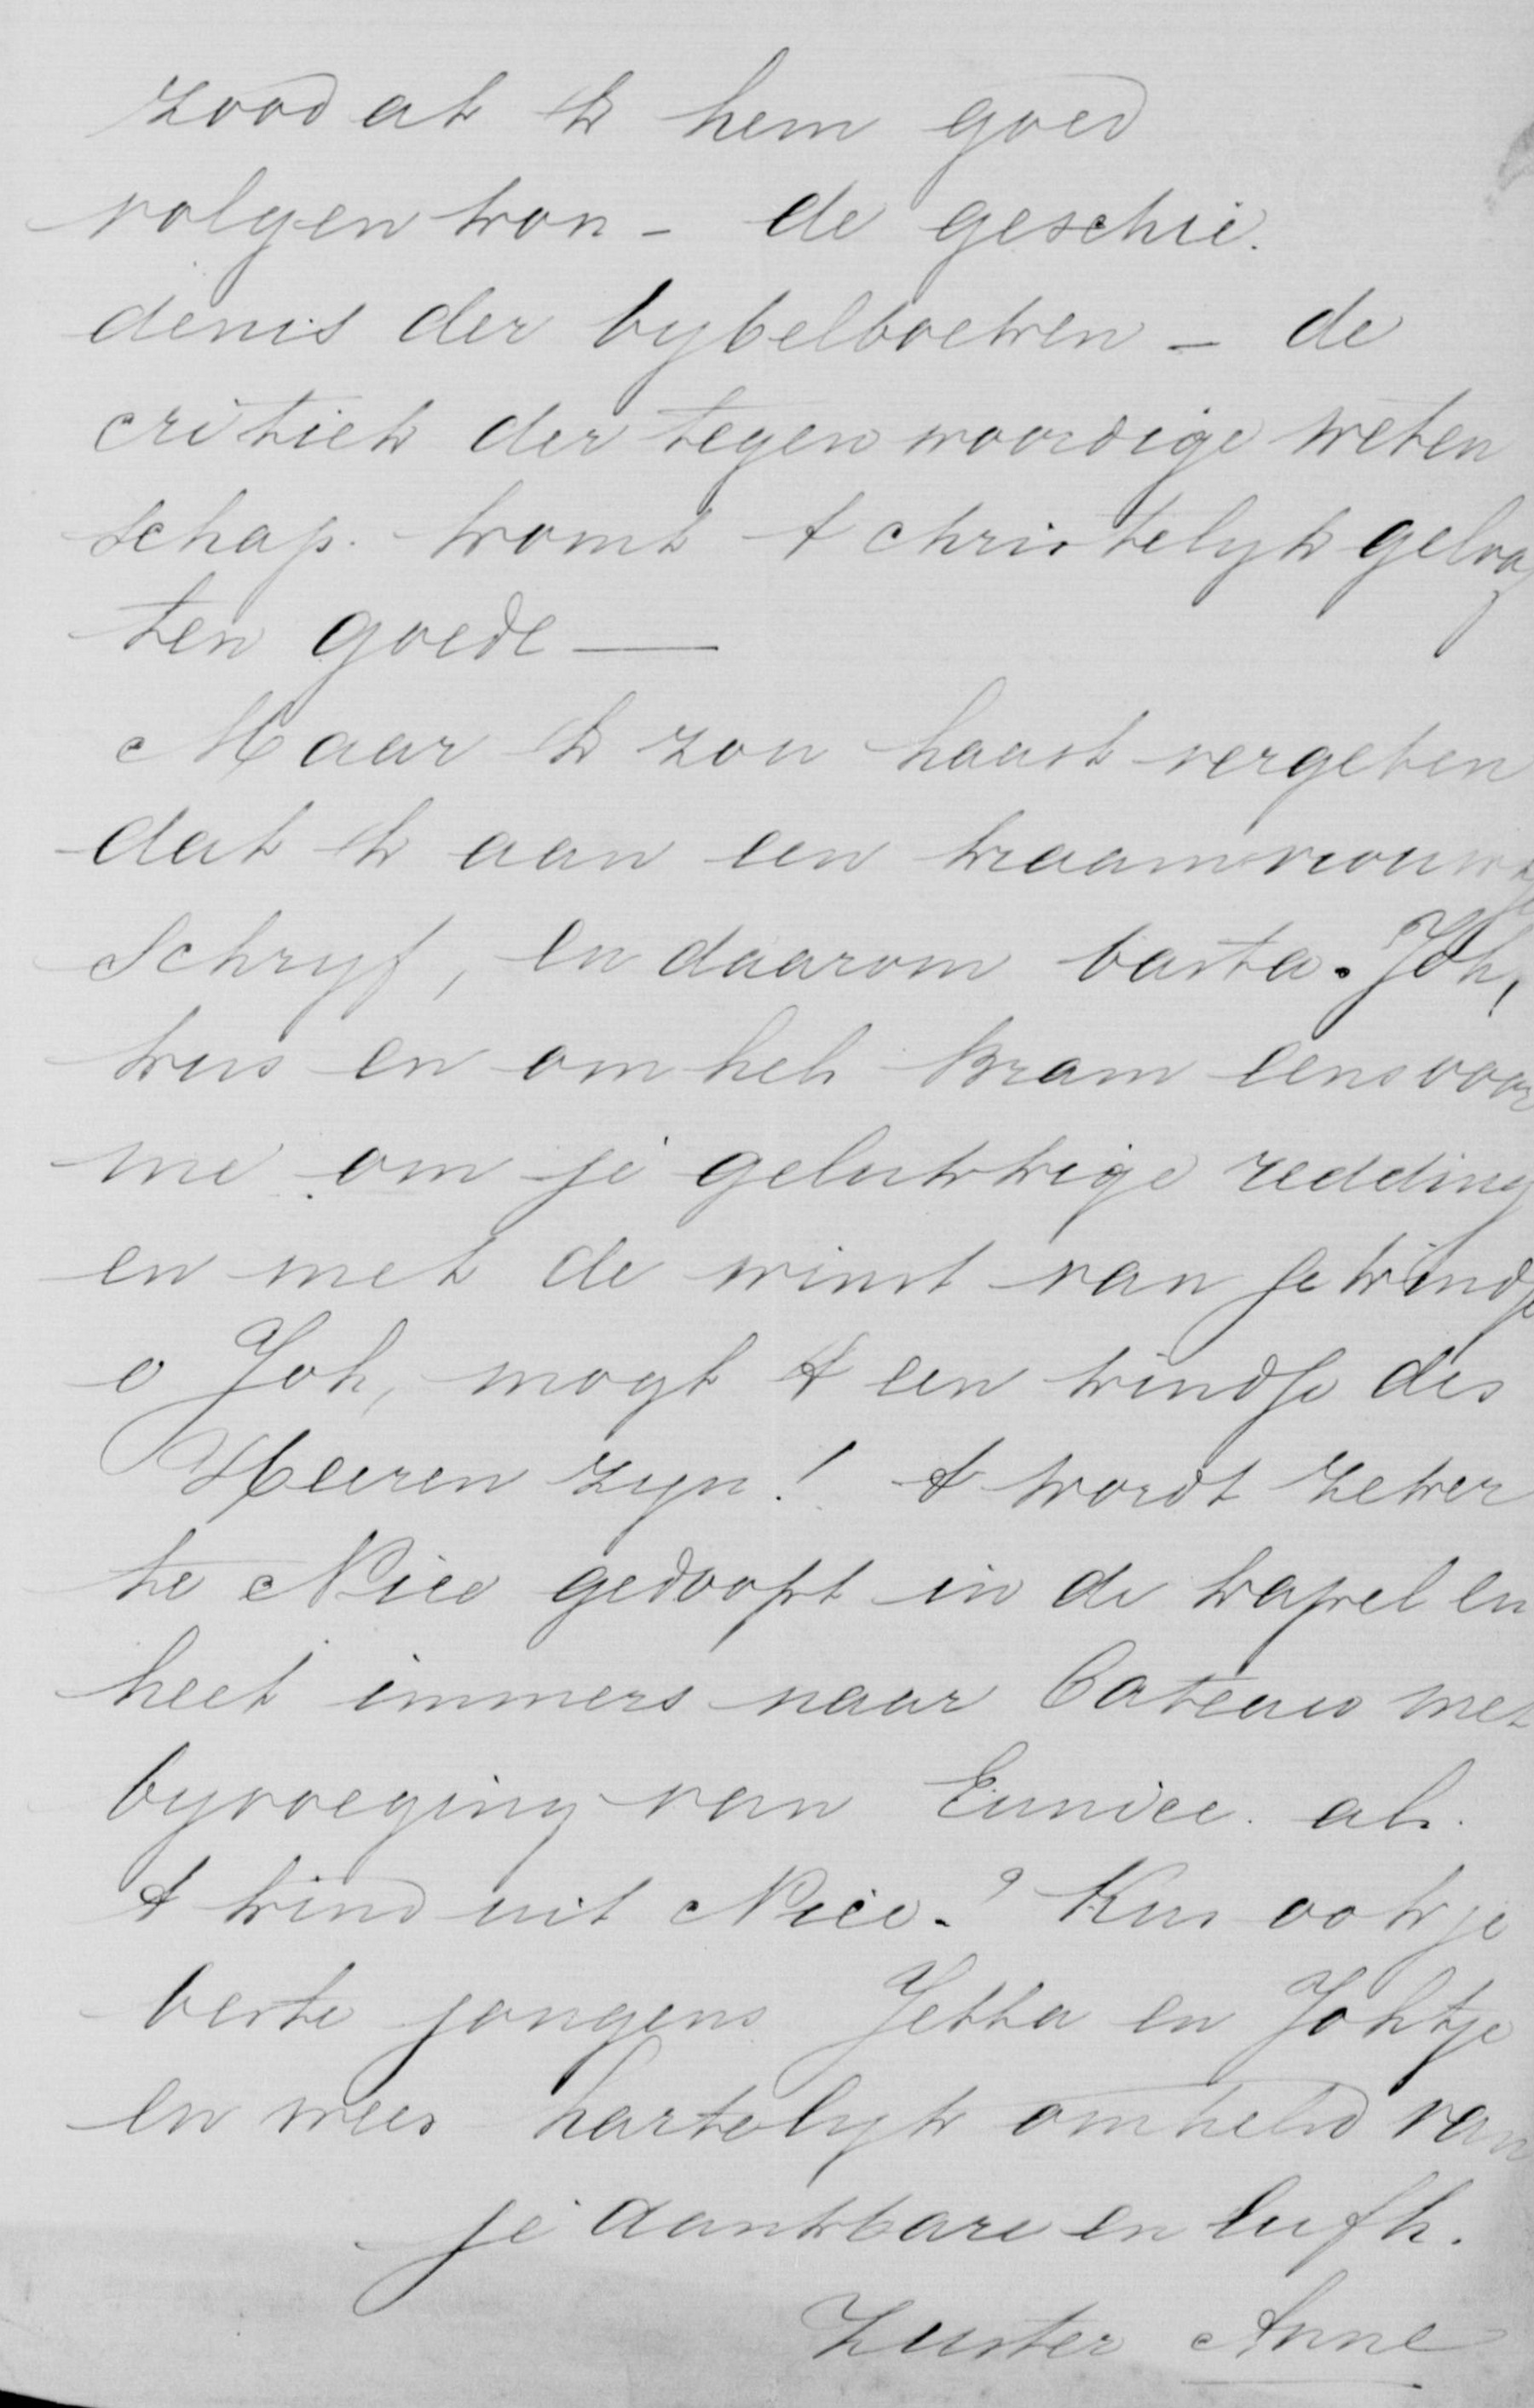 zoodat ik hem goed
volgen kon - de geschie.
denis der bybelboeken - de
critiek der tegenwoordige weten
schap. komt 't christelyk geloof
ten goede —
Maar ik zou haast vergeten
dat ik aan een kraamvrouwtje
schryf, en daarom basta. Joh,
kus en omhels Bram eens voor
me om je gelukkige redding
en met de winst van je kindje
o Joh, mogt 't een kindje des
Heeren zyn! 't wordt zeker
te Nice gedoopt in de kapel en
heet immers naar Cateau met
byvoeging van Eunice. als.
't kind uit Nice.? Kus ook je
beste jongens Jetta en Johtje
en wees hartelyk omhelsd van
je dankbare en liefh.
Zuster Anne